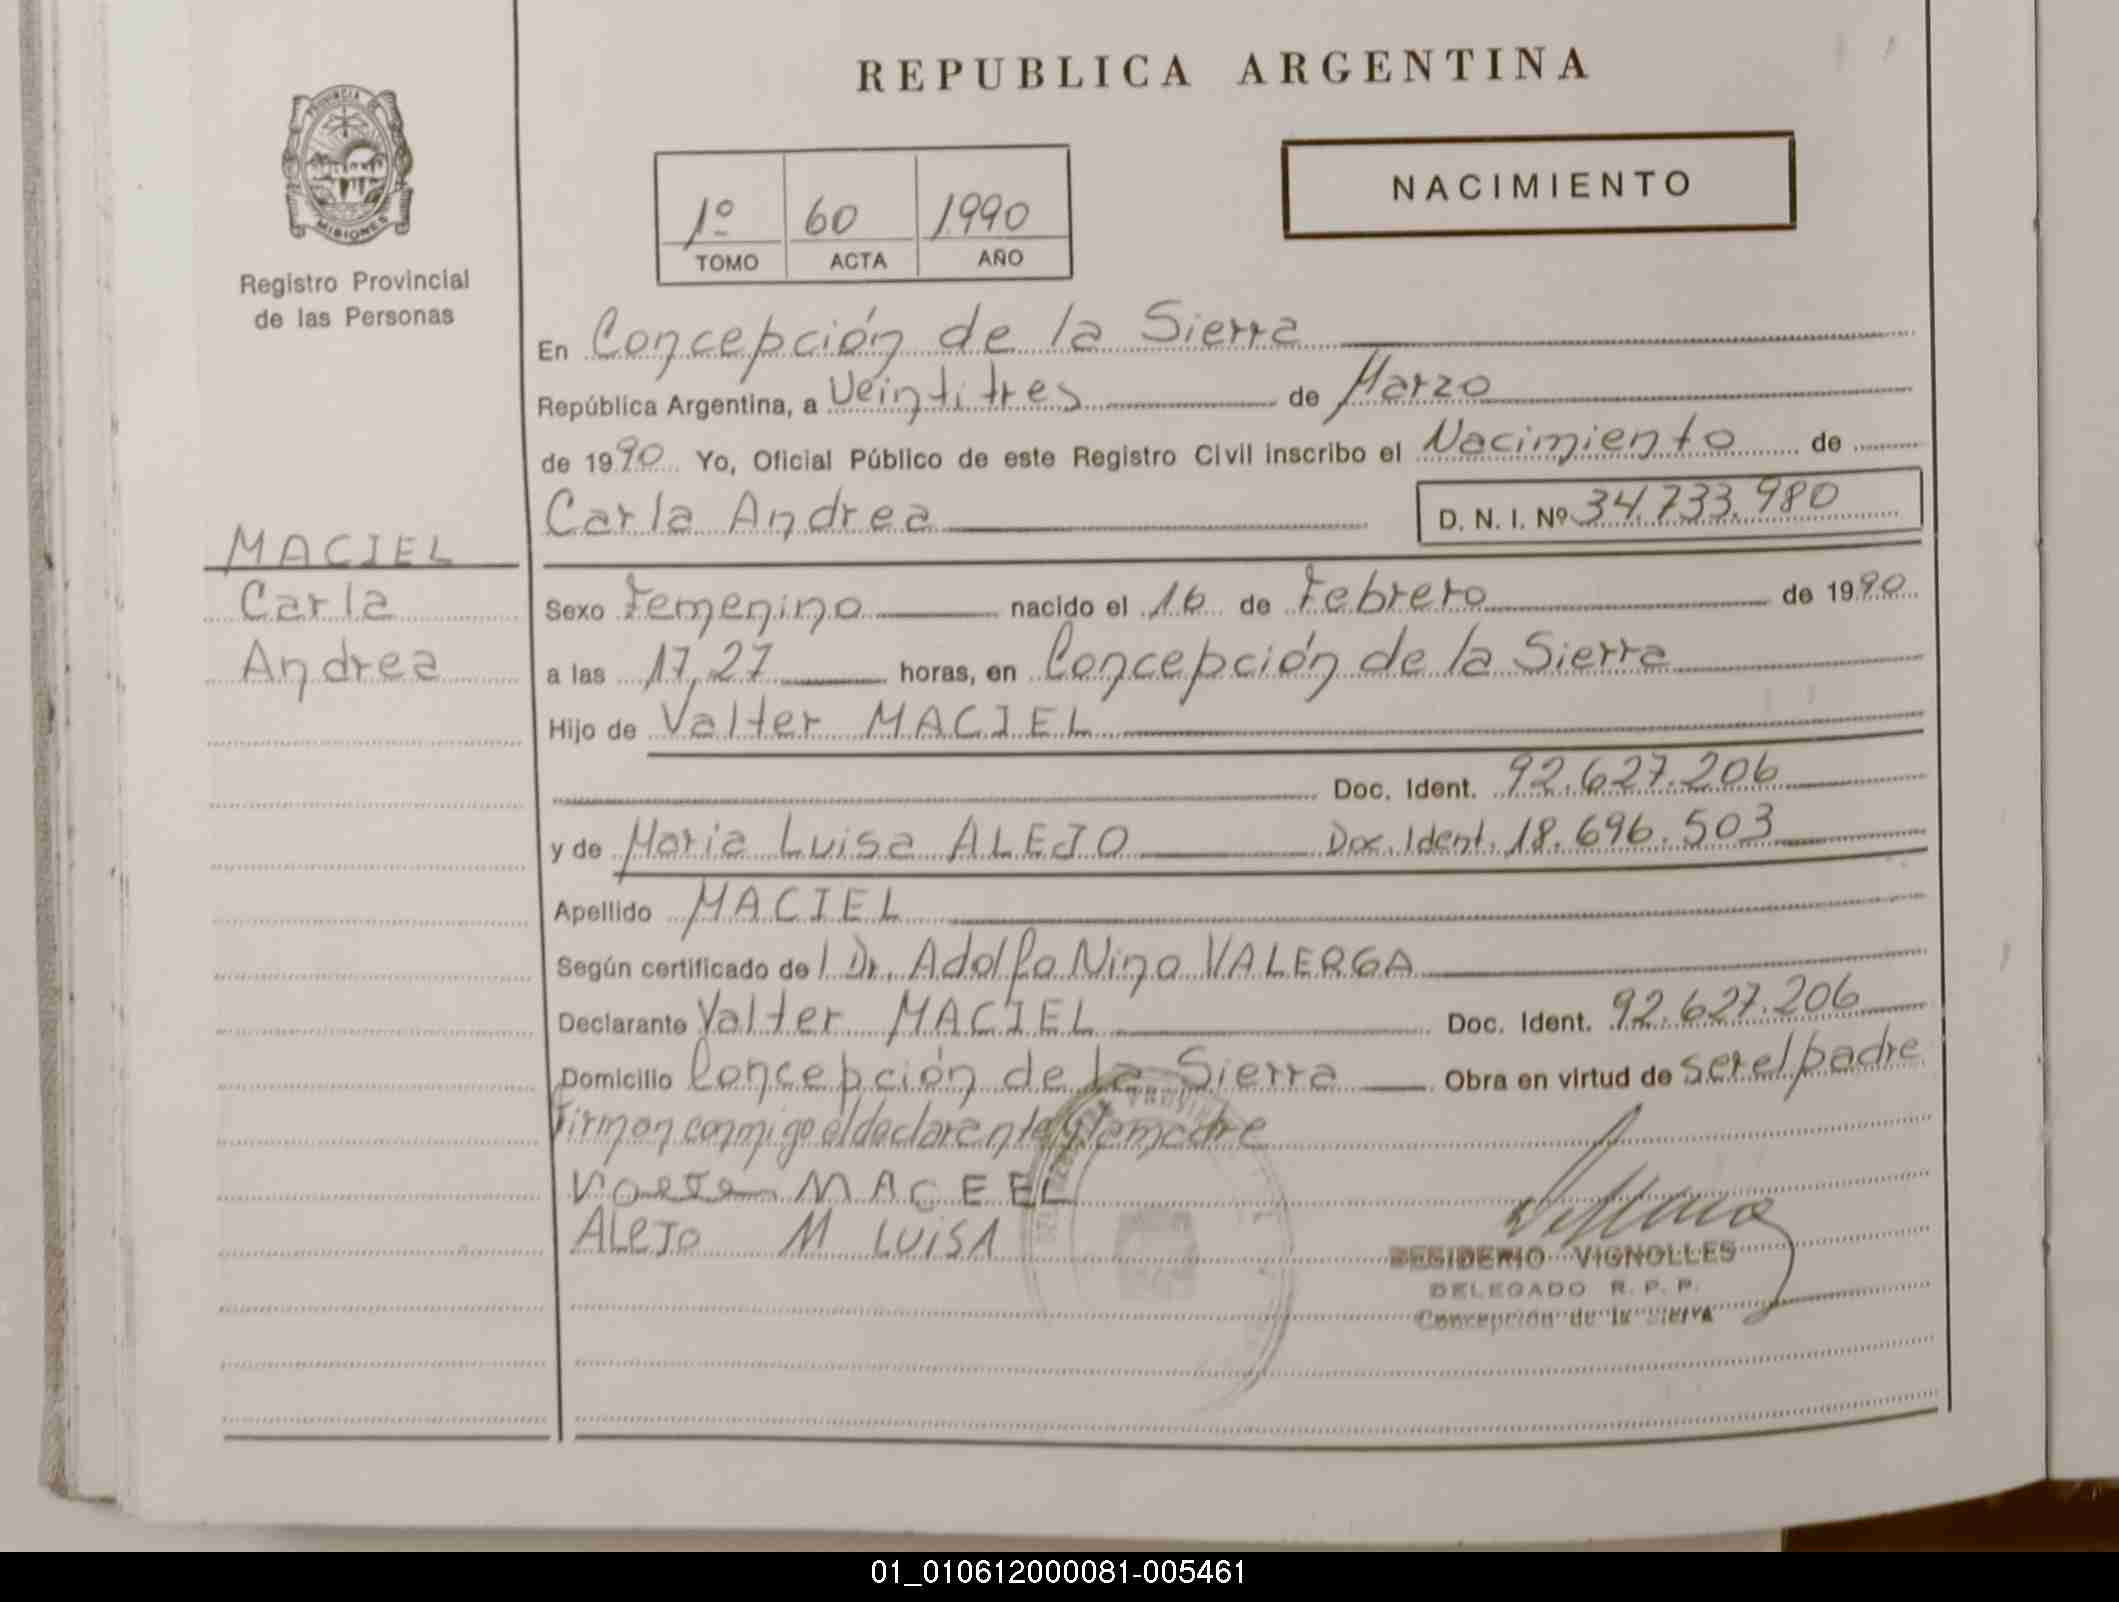 REPUBLICA ARGENTINA
PROVINCIA DE
MISIONES
Registro Provincial
de las Personas
1º 60 1990
TOMO ACTA AÑO
NACIMIENTO
En Concepción de la Sierra
República Argentina, a Veintitres de Marzo
de 1990 Yo, Oficial Público de este Registro Civil inscribo el Nacimiento de
Carla Andrea D. N. I. Nº 34.733.980
MACIEL
Carla
Andrea
Sexo Femenino nacido el 16 de Febrero de 1990
a las 17,27 horas, en Concepción de la Sierra
Hijo de Valter MACIEL
Doc. Ident. 92.627.206
y de Maria Luisa ALEJO Doc. Ident. 18.696.503
Apellido MACIEL
Según certificado de l Dr. Adolfo Nino VALERGA
Declarante Valter MACIEL Doc. Ident. 92.627.206
Domicilio Concepción de la Sierra Obra en virtud de ser el padre
Firman conmigo el declarante y la madre
MACEEL
ALEJO M LUISA
DESIDERIO VIGNOLLES
DELEGADO R. P. P.
Concepción de la Sierra
01_010612000081-005461